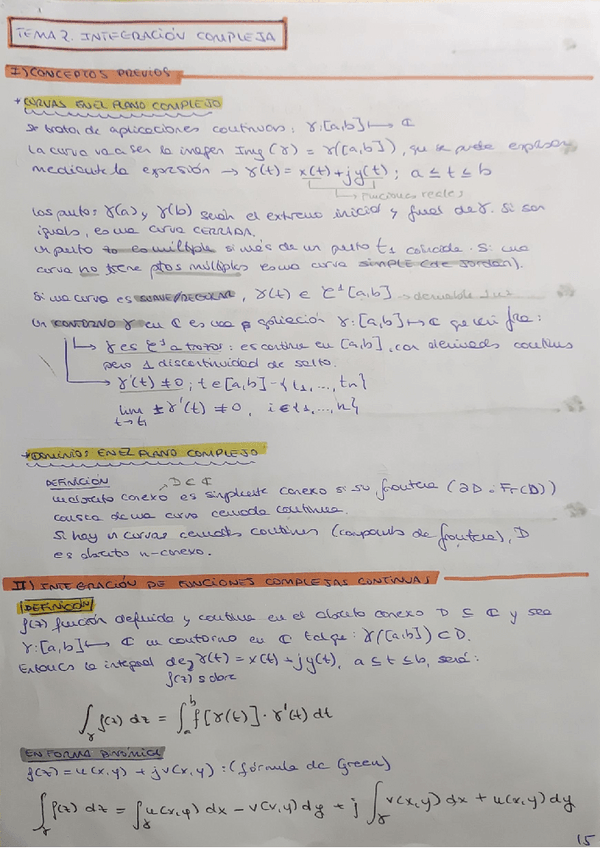 TEMA 2. INTEGRACIÓN COMPLEJA
I) CONCEPTOS PREVIOS
* CURVAS EN EL PLANO COMPLEJO
Se trata de aplicaciones continuas: γ: [a,b] ↦ ℂ
La curva va a ser la imagen Img(γ) = γ([a,b]), que se puede expresar
mediante la expresión → γ(t) = x(t) + jy(t); a ≤ t ≤ b
↳ funciones reales
Los ptos: γ(a) y γ(b) serán el extremo inicial y final de γ. Si son
iguales, es una curva CERRADA.
Un pto es múltiple si más de un pto t₁ coincide. Si una
curva no tiene ptos múltiples es una curva SIMPLE (de Jordan).
Si una curva es SUAVE/REGULAR, γ(t) ∈ C¹[a,b] → derivable 1 vez
Un CONTORNO γ en ℂ es una aplicación γ: [a,b] ↦ ℂ que
↳ γ es C¹ a trozos: es continua en [a,b], con derivadas continuas
pero 1 discontinuidad de salto.
↳ γ'(t) ≠ 0; t ∈ [a,b] - {t₁, ..., tn}
lim ± γ'(t) ≠ 0, i ∈ {1, ..., n}
t→ti
* DOMINIOS EN EL PLANO COMPLEJO
DEFINICIÓN D ⊂ ℂ
Un abierto conexo es simplemente conexo si su frontera (∂D = Fr(D))
consta de una curva cerrada continua.
Si hay n curvas cerradas continuas (componentes de frontera), D
es abierto n-conexo.
II) INTEGRACIÓN DE FUNCIONES COMPLEJAS CONTINUAS
DEFINICIÓN
f(z) función definida y continua en el abierto conexo D ⊆ ℂ y sea
γ: [a,b] ↦ ℂ un contorno en ℂ tal que: γ([a,b]) ⊂ D.
Entonces la integral de f(z) sobre γ(t) = x(t) + jy(t), a ≤ t ≤ b, será:
∫γ f(z) dz = ∫ₐᵇ f[γ(t)] · γ'(t) dt
EN FORMA BINÓMICA
f(z) = u(x,y) + jv(x,y): (fórmula de Green)
∫γ f(z) dz = ∫γ u(x,y) dx - v(x,y) dy + j ∫γ v(x,y) dx + u(x,y) dy
15